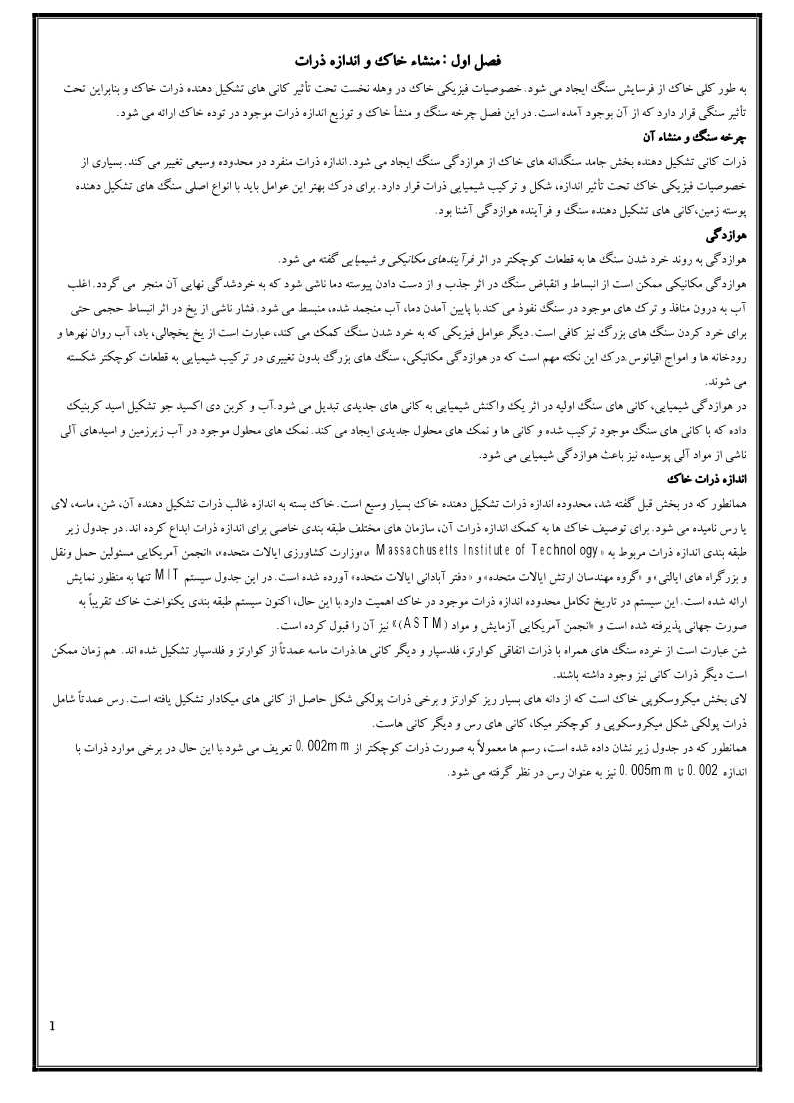 فصل اول : منشاء خاک و اندازه ذرات
به طور کلی خاک از فرسایش سنگ ایجاد می شود. خصوصیات فیزیکی خاک در وهله نخست تحت تأثیر کانی های تشکیل دهنده ذرات خاک و بنابراین تحت
تأثیر سنگی قرار دارد که از آن بوجود آمده است. در این فصل چرخه سنگ و منشأ خاک و توزیع اندازه ذرات موجود در توده خاک ارائه می شود.
چرخه سنگ و منشاء آن
ذرات کانی تشکیل دهنده بخش جامد سنگدانه های خاک از هوازدگی سنگ ایجاد می شود. اندازه ذرات منفرد در محدوده وسیعی تغییر می کند. بسیاری از
خصوصیات فیزیکی خاک تحت تأثیر اندازه، شکل و ترکیب شیمیایی ذرات قرار دارد. برای درک بهتر این عوامل باید با انواع اصلی سنگ های تشکیل دهنده
پوسته زمین،کانی های تشکیل دهنده سنگ و فرآینده هوازدگی آشنا بود.
هوازدگی
هوازدگی به روند خرد شدن سنگ ها به قطعات کوچکتر در اثر فرآیندهای مکانیکی و شیمیایی گفته می شود.
هوازدگی مکانیکی ممکن است از انبساط و انقباض سنگ در اثر جذب و از دست دادن پیوسته دما ناشی شود که به خردشدگی نهایی آن منجر می گردد. اغلب
آب به درون منافذ و ترک های موجود در سنگ نفوذ می کند.با پایین آمدن دما، آب منجمد شده، منبسط می شود. فشار ناشی از یخ در اثر انبساط حجمی حتی
برای خرد کردن سنگ های بزرگ نیز کافی است. دیگر عوامل فیزیکی که به خرد شدن سنگ کمک می کند، عبارت است از یخ یخچالی، باد، آب روان نهرها و
رودخانه ها و امواج اقیانوس.درک این نکته مهم است که در هوازدگی مکانیکی، سنگ های بزرگ بدون تغییری در ترکیب شیمیایی به قطعات کوچکتر شکسته
می شوند.
در هوازدگی شیمیایی، کانی های سنگ اولیه در اثر یک واکنش شیمیایی به کانی های جدیدی تبدیل می شود.آب و کربن دی اکسید جو تشکیل اسید کربنیک
داده که با کانی های سنگ موجود ترکیب شده و کانی ها و نمک های محلول جدیدی ایجاد می کند. نمک های محلول موجود در آب زیرزمین و اسیدهای آلی
ناشی از مواد آلی پوسیده نیز باعث هوازدگی شیمیایی می شود.
اندازه ذرات خاک
همانطور که در بخش قبل گفته شد، محدوده اندازه ذرات تشکیل دهنده خاک بسیار وسیع است. خاک بسته به اندازه غالب ذرات تشکیل دهنده آن، شن، ماسه، لای
یا رس نامیده می شود. برای توصیف خاک ها به کمک اندازه ذرات آن، سازمان های مختلف طبقه بندی خاصی برای اندازه ذرات ابداع کرده اند. در جدول زیر
طبقه بندی اندازه ذرات مربوط به « Massachusetts Institute of Technology »،«وزارت کشاورزی ایالات متحده»، «انجمن آمریکایی مسئولین حمل ونقل
و بزرگراه های ایالتی» و «گروه مهندسان ارتش ایالات متحده» و « دفتر آبادانی ایالات متحده» آورده شده است. در این جدول سیستم MIT تنها به منظور نمایش
ارائه شده است. این سیستم در تاریخ تکامل محدوده اندازه ذرات موجود در خاک اهمیت دارد.با این حال، اکنون سیستم طبقه بندی یکنواخت خاک تقریباً به
صورت جهانی پذیرفته شده است و «انجمن آمریکایی آزمایش و مواد (ASTM)» نیز آن را قبول کرده است.
شن عبارت است از خرده سنگ های همراه با ذرات اتفاقی کوارتز، فلدسپار و دیگر کانی ها.ذرات ماسه عمدتاً از کوارتز و فلدسپار تشکیل شده اند. هم زمان ممکن
است دیگر ذرات کانی نیز وجود داشته باشند.
لای بخش میکروسکوپی خاک است که از دانه های بسیار ریز کوارتز و برخی ذرات پولکی شکل حاصل از کانی های میکادار تشکیل یافته است. رس عمدتاً شامل
ذرات پولکی شکل میکروسکوپی و کوچکتر میکا، کانی های رس و دیگر کانی هاست.
همانطور که در جدول زیر نشان داده شده است، رسم ها معمولاً به صورت ذرات کوچکتر از 0.002mm تعریف می شود.با این حال در برخی موارد ذرات با
اندازه 0.002 تا 0.005mm نیز به عنوان رس در نظر گرفته می شود.
1